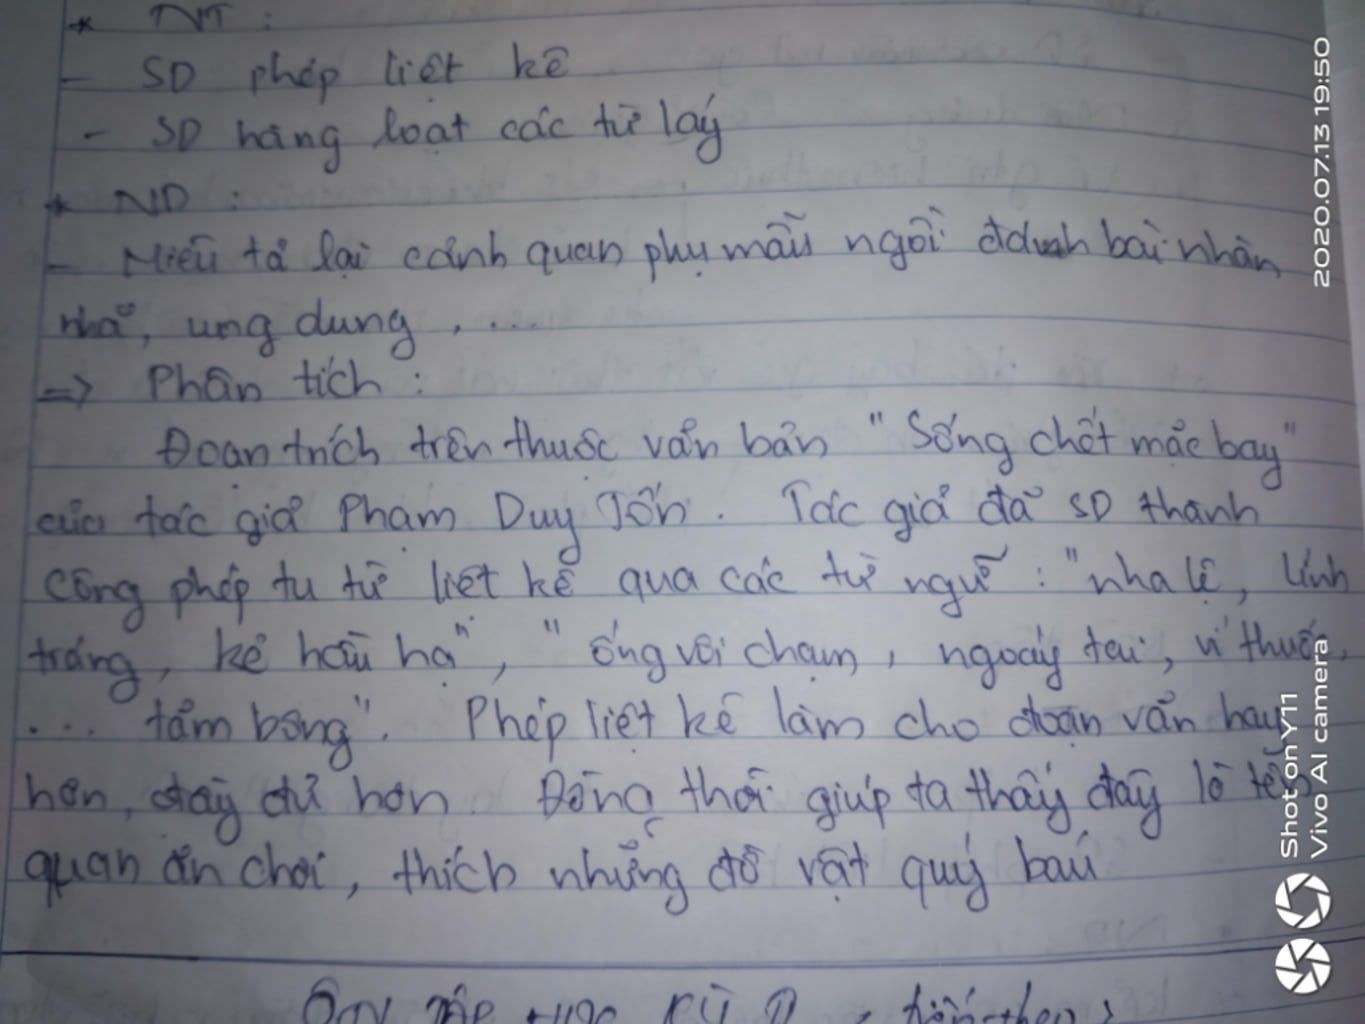 * NT :
- SD phép liệt kê
- SD hàng loạt các từ láy
* ND :
- Miêu tả lại cảnh quan phụ mẫu ngồi đánh bài nhàn
nhã, ung dung , ....
=> Phân tích :
Đoạn trích trên thuộc văn bản " Sống chết mặc bay"
của tác giả Phạm Duy Tốn . Tác giả đã SD thành
công phép tu từ liệt kê qua các từ ngữ : "nha lệ, lính
tráng, kẻ hầu hạ", " ống vôi chạm , ngoáy tai , ví thuốc,
... tăm bông". Phép liệt kê làm cho đoạn văn hay
hơn, đầy đủ hơn. Đồng thời giúp ta thấy đây là tên
quan ăn chơi, thích những đồ vật quý báu
2020.07.13 19:50
Shot on Y11
Vivo AI camera